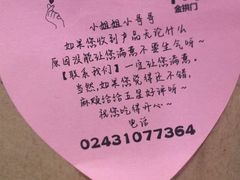 金拱门
小姐姐小哥哥
如果您收到产品无论什么
原因没能让您满意不要生气呀~
【联系我们】一定让您满意,
当然,如果您觉得还不错,
麻烦给给五星好评呀~
祝您吃得开心~
电话
02431077364